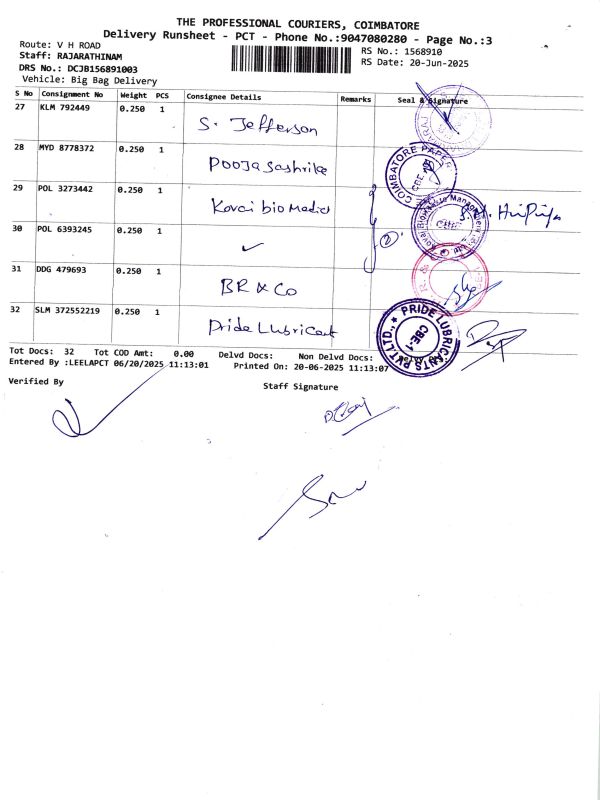 THE PROFESSIONAL COURIERS, COIMBATORE
Delivery Runsheet - PCT - Phone No.:9047080280 - Page No.:3
Route: V H ROAD
RS No.: 1568910
Staff: RAJARATHINAM
RS Date: 20-Jun-2025
DRS No.: DCJB156891003
Vehicle: Big Bag Delivery
S No Consignment No Weight PCS Consignee Details Remarks Seal & Signature
27 KLM 792449 0.250 1 S. Jefferson
28 MYD 8778372 0.250 1 Pooja Sashrika COIMBATORE PAPER CBE
29 POL 3273442 0.250 1 Kovai bio Medicl
30 POL 6393245 0.250 1 ✓ (2)
31 DDG 479693 0.250 1 BR & Co
32 SLM 372552219 0.250 1 Pride Lubricant PRIDE LUBRICANTS PVT LTD., CBE-1
Tot Docs: 32 Tot COD Amt: 0.00 Delvd Docs: Non Delvd Docs:
Entered By :LEELAPCT 06/20/2025 11:13:01 Printed On: 20-06-2025 11:13:07
Verified By
Staff Signature